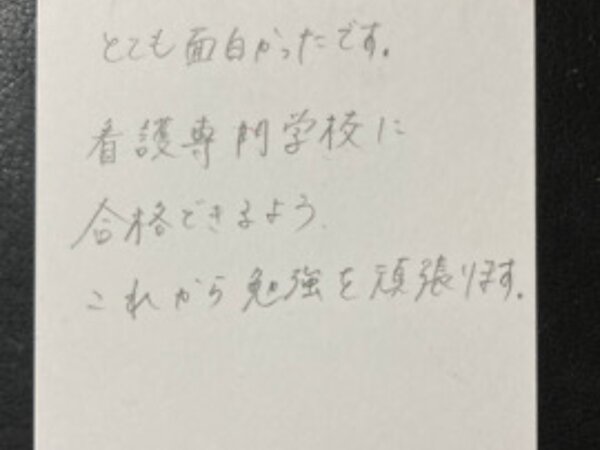 とても面白かったです。
看護専門学校に
合格できるよう、
これから勉強を頑張ります。